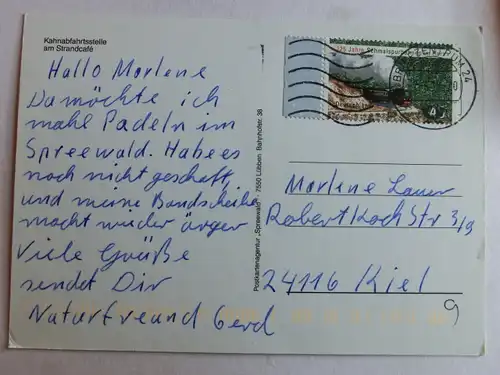 Kahnabfahrtsstelle
am Strandcafé
Hallo Marlene
Da möchte ich
mahl Padeln im
Spreewald. Habe es
noch nicht geschaft
und meine Bandscheibe
macht wieder ärger
Viele Grüße
sendet Dir
Naturfreund Gerd
Postkartenagentur „Spreewald“ · 7550 Lübben, Bahnhofstr. 38
125 Jahre Schmalspur
BRIEFZENTRUM 24
45
Marlene Lauer
Robert Koch Str 3/9
24116 Kiel
9